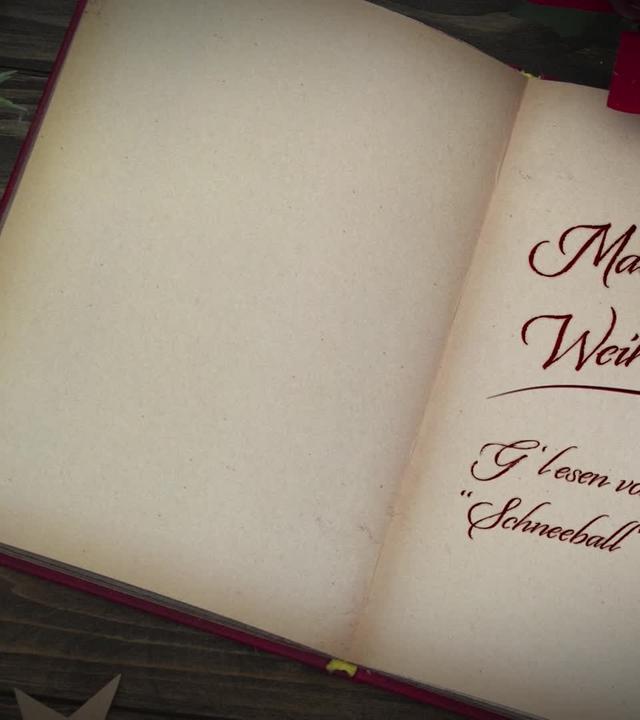 Ma
Wei
G'lesen vo
“Schneeball”